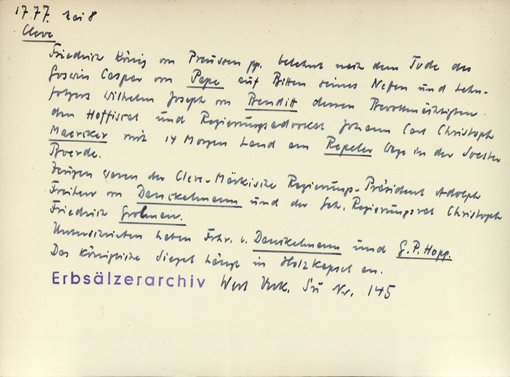 1777. Mai 8
Cleve
Friedrich König von Preussen pp. belehnt nach dem Tode des
Goswin Caspar von Pape auf Bitten seines Neffen und Lehn-
folgers Wilhelm Joseph von Benditt dessen Bevollmächtigten
den Hoffiscal und Regierungsadvocat Johann Carl Christoph
Maercker mit 14 Morgen Land am Repeler Wege in der Soester
Boerde.
Zeugen waren der Cleve-Märkische Regierungs-Präsident Adolph
Freiherr von Danckelmann und der Geh. Regierungsrat Christoph
Friedrich Grolman.
Unterschrieben haben Frhr. v. Danckelmann und G. P. Hopp.
Das königliche Siegel hängt in Holzkapsel an.
Erbsälzerarchiv Werl Urk. Nr. 145